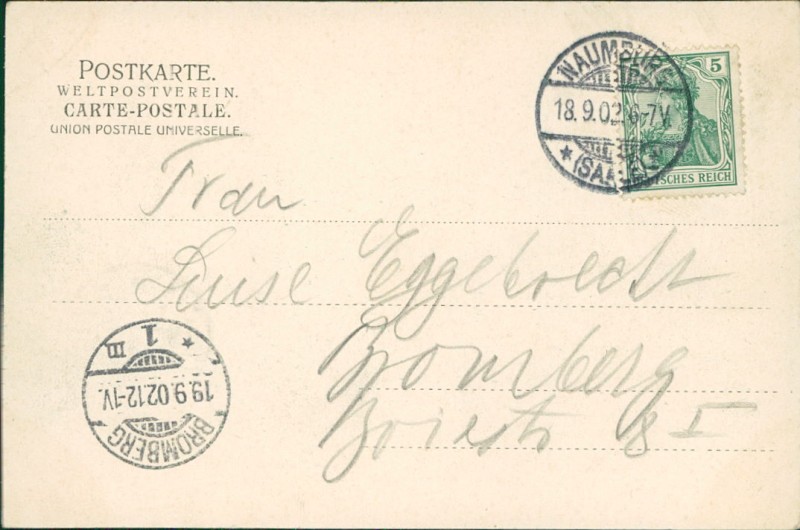 POSTKARTE.
WELTPOSTVEREIN.
CARTE-POSTALE.
UNION POSTALE UNIVERSELLE.
NAUMBURG
18.9.02. 6-7V.
* (SAALE)
5
DEUTSCHES REICH
Frau
Luise
Bromberg
8 I
BROMBERG
19.9.02.12-1V.
* 1 III